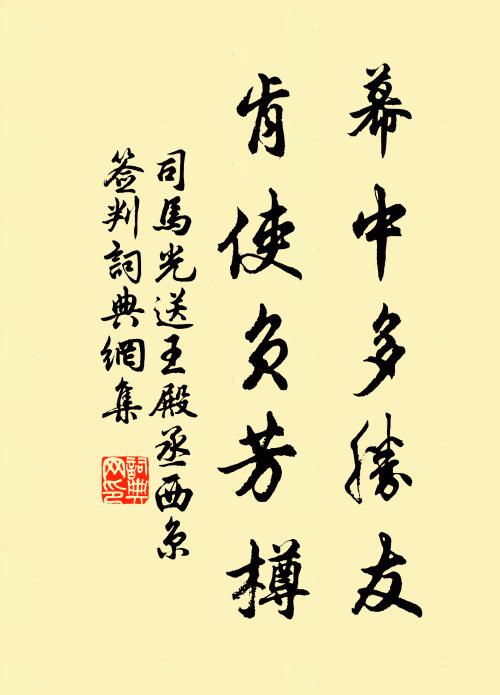 幕中多勝友
肯使負芳樽
司馬光送王殿丞西京
簽判詞典網集
詞典
网印